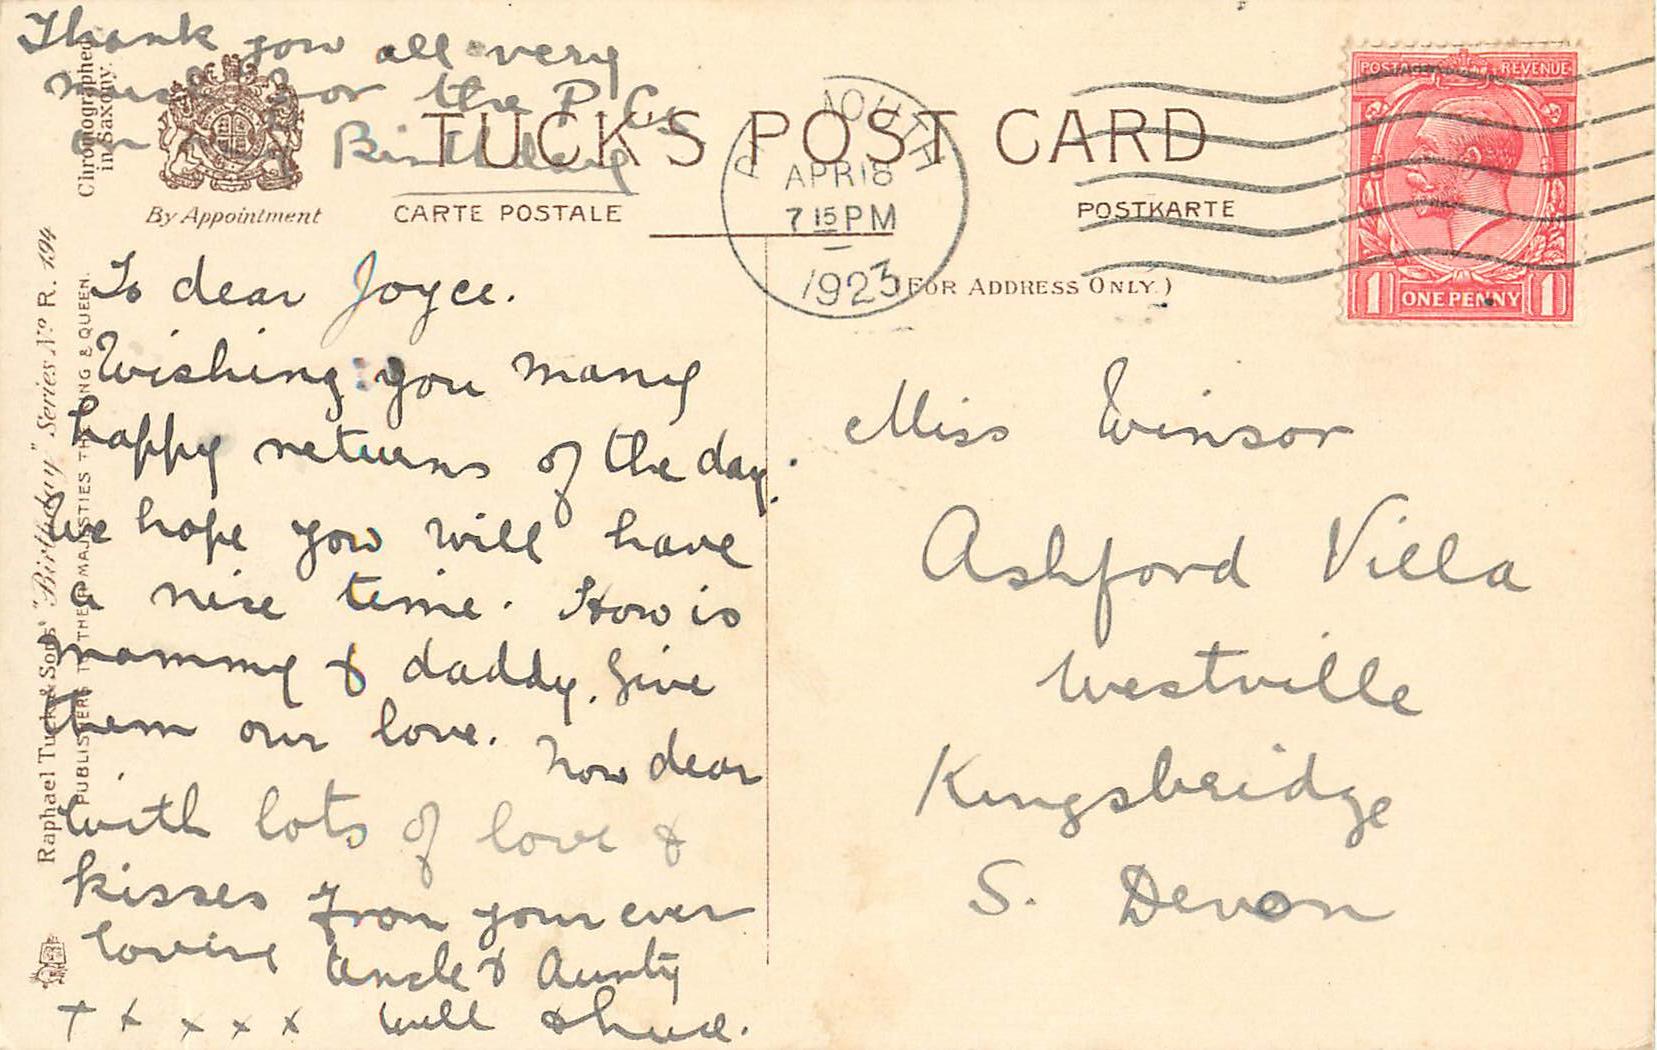 Thank you all very
much for the P. Cs
on Birthday
Chromographed
in Saxony.
By Appointment
TUCK'S POST CARD
CARTE POSTALE
POSTKARTE
(FOR ADDRESS ONLY.)
APR 18
7 15 PM
1923
POSTAGE REVENUE
1 ONE PENNY 1
Raphael Tuck & Sons' "Birthday" Series No R. 194
PUBLISHERS TO THEIR MAJESTIES THE KING & QUEEN.
To dear Joyce.
Wishing you many
happy returns of the day.
We hope you will have
a nise time. How is
mammy & daddy. Give
them our love. now dear
with lots of love &
kisses from your ever
lovine Uncle & Aunty
x x x x x Will
Miss Winsor
Ashford Villa
Westville
Kingsbridge
S. Devon